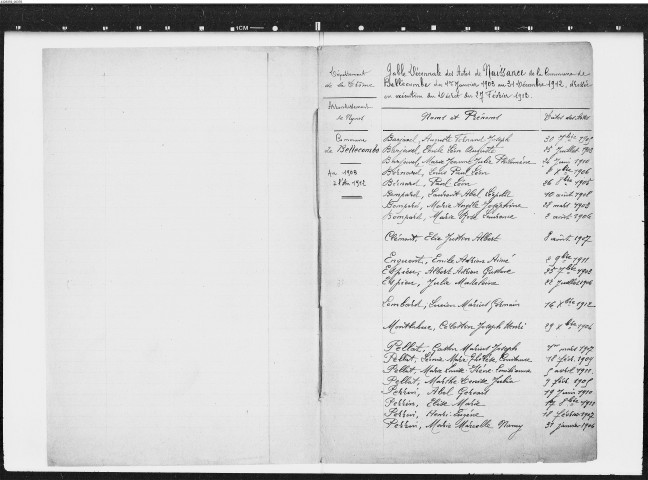 1CM
Département
de la Drôme
Arrondissement
de Nyons
Commune
de Bellecombe
An 1903
à l'An 1912
Table Décennale des Actes de Naissance de la Commune de
Bellecombe du 1er Janvier 1903 au 31 Décembre 1912, dressée
en exécution du Décret du 29 Février 1912.
Noms et Prénoms Dates des Actes
Barjavel, Auguste Fernand Joseph
Barjavel, Emile Léon Auguste Juillet
Barjavel, Marie Jeanne Julie Philomène Juin 1910
Bernard, Louis Paul Léon 8 Xbre 1906
Bernard, Paul Léon 26
Bompard, Laurent Abel Léopold 10 août 1908
Bompard, Marie Angèle Joséphine 28 mars 1903
Bompard, Marie Rose Laurence août 1906
Clément, Elie Justin Albert 8 août 1907
Enguent, Emile Adrien Aimé 2 9bre 1911
Espieu, Albert Adrien Gustave
Espieu, Julie Madeleine 22 Juillet 1906
Lombard, Lucien Marius Germain 16 Xbre 1912
Célestin Joseph Henri 29 Xbre 1906
Pellat, Gaston Marius Joseph 1er mars 1907
Pellat, Marie Constance 18 fév. 1909
Pellat, Marie Louise Irène Emilienne 5 avril 1911
Pellat, Marthe Denise Julia 9 fév 1905
Perrin, Abel Gervais 19 Juin 1910
Perrin, Elise Marie
Perrin, Henri Eugène 18 février 1907
Perrin, Marie Marcelle Nancy 31 janvier 1906